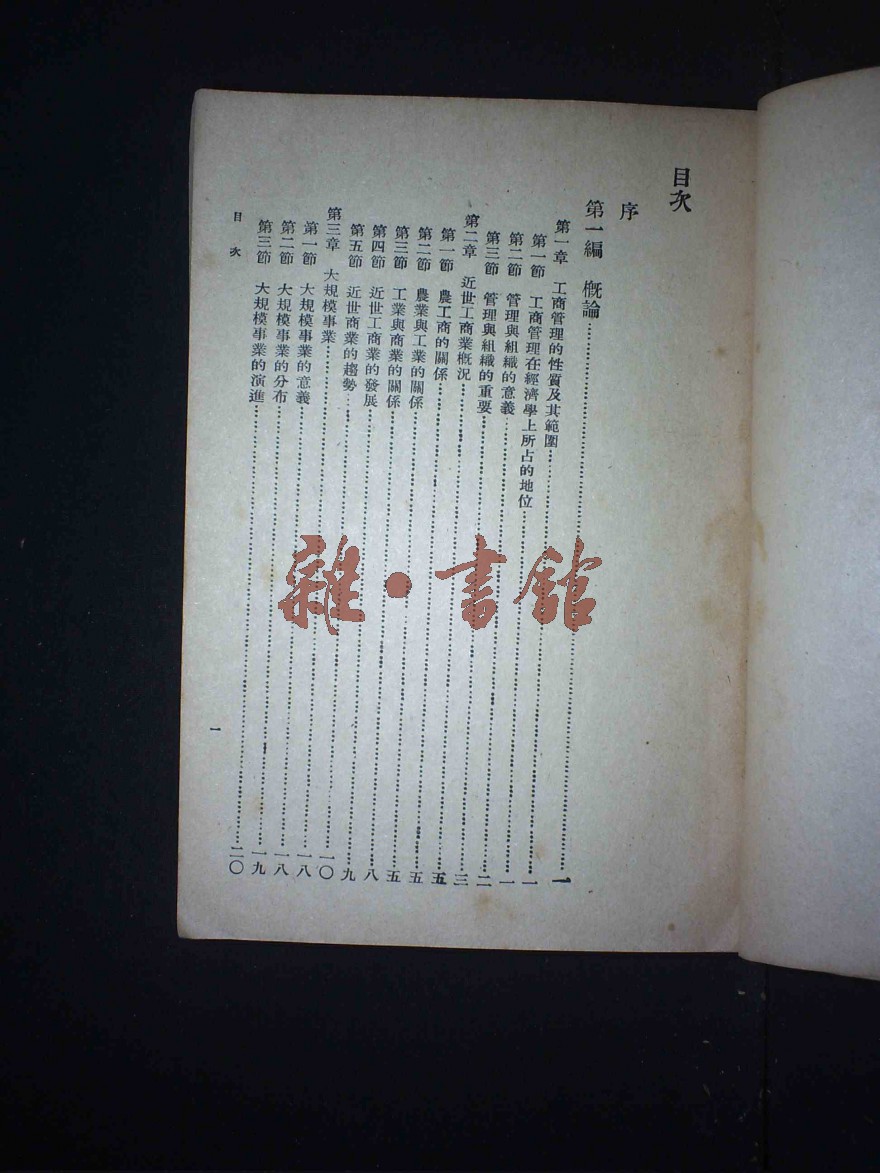 目次
序
第一編 概論……………一
第一章 工商管理的性質及其範圍……………一
第一節 工商管理在經濟學上所占的地位……………一
第二節 管理與組織的意義……………二
第三節 管理與組織的重要……………三
第二章 近世工商業概況……………五
第一節 農工商的關係……………五
第二節 農業與工業的關係……………五
第三節 工業與商業的關係……………八
第四節 近世工商業的發展……………九
第五節 近世商業的趨勢……………一〇
第三章 大規模事業……………一八
第一節 大規模事業的意義……………一八
第二節 大規模事業的分布……………一九
第三節 大規模事業的演進……………二〇
目次
一
雜·書館